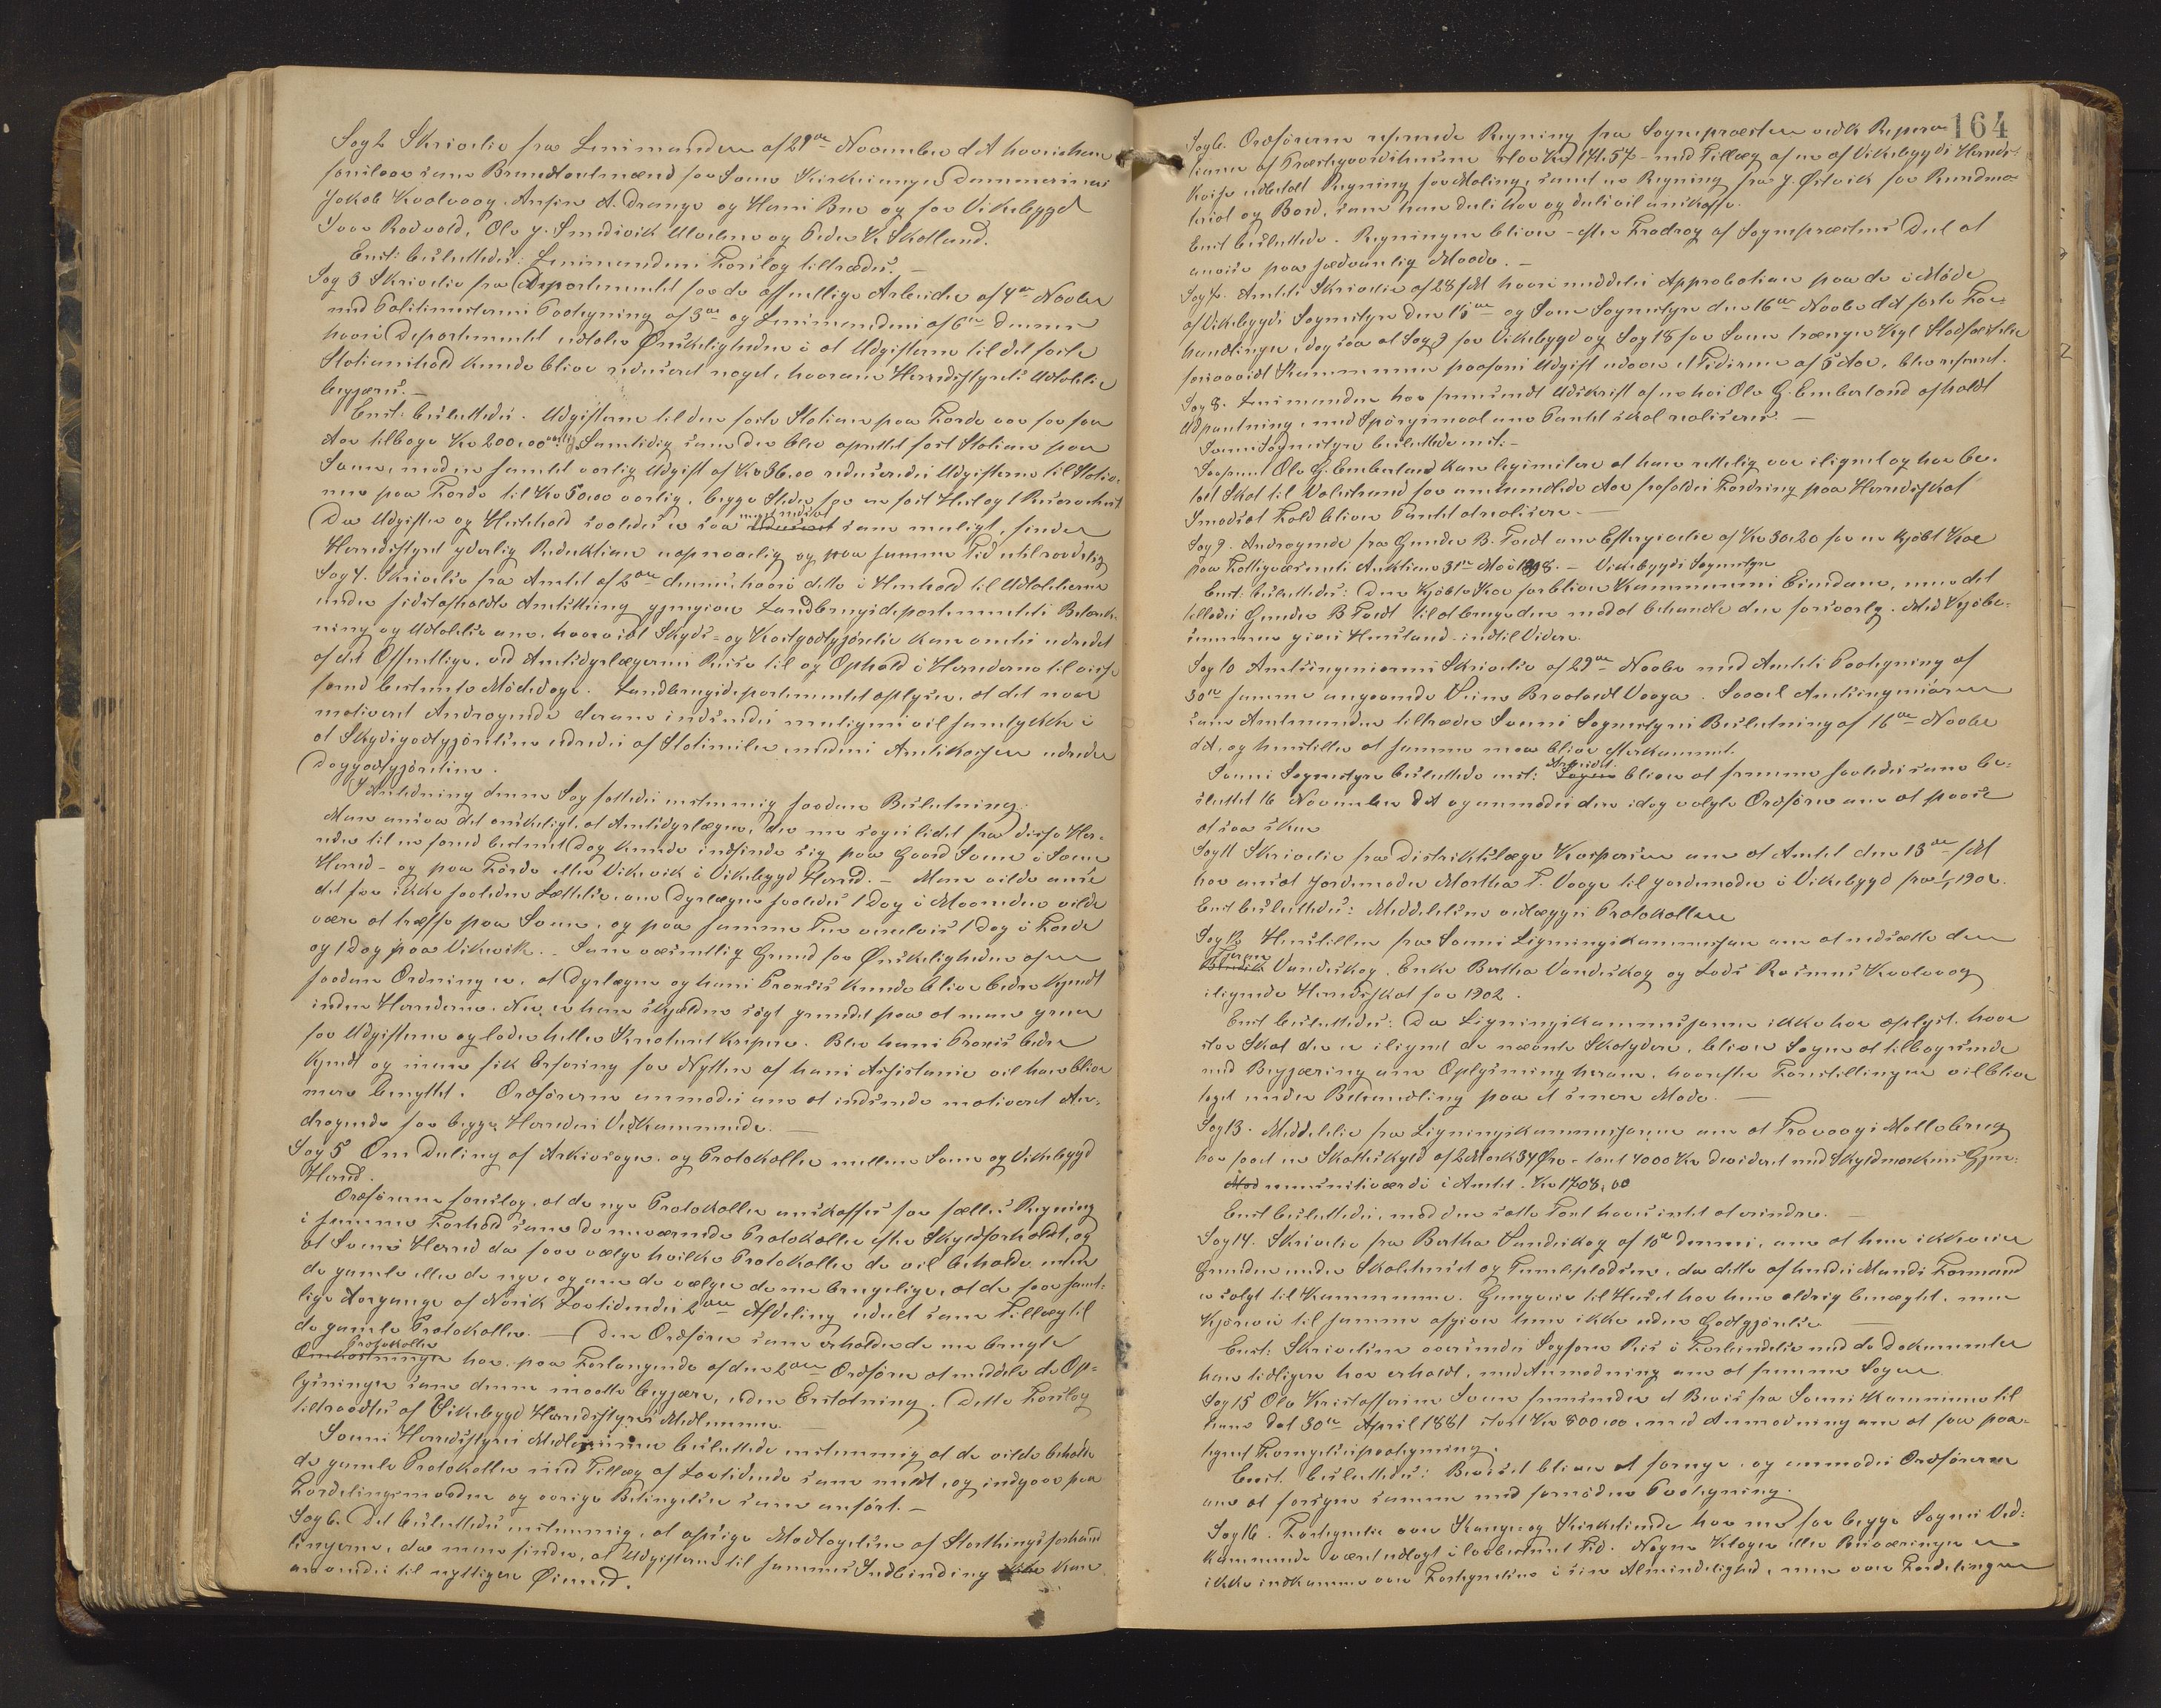 Sag 2 Skrivelse fra Lensmanden af 29de November d A hvori han
foreslaar som Brandtaxtmænd for Sveen Kirkesangns Dommerinas
Jakob Kvalvaag, Ansten A. Drange og Hans Boe og for Vikebygd
Iver Rødvold, Ole J. Smedsvik Ulveseter og Peder K. Skotland.
Enst: besluttedes: Lensmandens Forslag tiltrædes. —
Sag 3 Skrivelse fra Departementet for de offentlige Arbeider af 4de Novbr
med Politimesterens Paategning af 3de og Lensmandens af 6te dennes
hvori Departementet udtaler Ønskeligheden i at Udgifterne til det faste
Stationshold kunde blive reduceret noget, hvorom Herredsstyrets Udtalelse
begjæres. —
Enst: besluttedes. Udgifterne til den faste Station paa Førde var for faa
Aar tilbage Kr 200,00 aarlig. Samtidig som der blev oprettet fast Station paa
Sveen, mod en samlet aarlig Udgift af Kr 36,00 reduceredes Udgifterne til Statio-
nen paa Førde til Kr 50,00 aarlig, begge Steder for en fast Hest og 1 Reservehest
Da Udgifter og Hestehold saaledes er saa nedsat som muligt, finder
Herredsstyret yderlig Reduktion uopnaaelig og paa samme Tid utilraadelig
Sag 4. Skrivelse fra Amtet af 2den dennes, hvori dette i Henhold til Udtalelserne
under sidstafholdte Amtsthing gjengiver Landbrugsdepartementets Betænk-
ning og Udtalelse om, hvorvidt Skyds- og Kostgodtgjørelse kan ventes udredet
af det Offentlige, ved Amtsdyrlægernes Reise til og Ophold i Herrederne til visse
forud bestemte Mødedage. Landbrugsdepartementet oplyser, at det naar
motiveret Andragende derom indsendes muligens vil samtykke i
at Skydsgodtgjørelsen udredes af Statsmidler medens Amtskassen udreder
Daggodtgjørelsen.
I Anledning denne Sag fattedes enstemmig saadan Beslutning:
Man anser det ønskeligt, at Amtsdyrlægen, der nu søges lidet fra disse Her-
reder til en forud bestemt Dag kunde indfinde sig paa Gaard Sveen i Sveen
Herred – og paa Førde eller Vikevik i Vikebygd Herred. — Man vilde anse
det for ikke saaliden Lettelse, om Dyrlægen saaledes 1 Dag i Maaneden vilde
være at træffe paa Sveen, og paa samme Tur vexelvis 1 Dag i Førde
og 1 Dag paa Vikevik. Som væsentlig Grund for Ønskeligheden af en
saadan Ordning er, at Dyrlægen og hans Praxis kunde blive bedre kjendt
inden Herrederne. Nu er han sjelden søgt grundet paa at man gruer
for Udgifterne og lader heller Kreaturet krepere. Blev hans Praxis bedre
kjendt og man fik Erfaring for Nytten af hans Assistance vil han blive
mere benyttet. Ordførerne anmodes om at indsende motiveret An-
dragende for begge Herreders Vedkommende. —
Sag 5 Om Deling af Arkivsager og Protokoller mellem Sveen og Vikebygd
Herred.
Ordførerne foreslog, at de nye Protokoller anskaffes for fælles Regning
i samme Forhold som de nuværende Protokoller efter Skyldforholdet, og
at Sveens Herred da faar vælge hvilke Protokoller de vil beholde enten
de gamle eller de nye, og om de vælger de nu brugelige, at de faar samt-
lige Aargange af Norsk Lovtidendes 2den Afdeling uduelt som Tillæg til
de gamle Protokoller. — Den Ordfører som erholder de nu brugte
Protokoller har paa Forlangende af den 2den Ordfører at meddele de Op-
lysninger som denne maatte begjære, uden Erstatning. Dette Forslag
tiltraadtes af Vikebygd Herredsstyres Medlemmer.
Sveens Herredsstyres Medlemmer besluttede enstemmig at de vilde beholde
de gamle Protokoller med Tillæg af Lovtidende som meldt, og indgaar paa
Fordelingsmaaden og øvrige Betingelser som anført. —
Sag 6. Det besluttedes enstemmig, at opsige Modtagelsen af Storthingsforhand-
lingerne, da man finder, at Udgifterne til sammes Indbinding kan
anvendes til nyttigere Øiemed.
164
Sag 6. Ordførerne refererede Regning fra Sognepræsten vedk Repera-
tioner af Præstegaardshusene stor Kr 171.57 – med Tillæg af en af Vikebygds Herreds-
kasse udbetalt Regning for Maling, samt en Regning fra J. Østvik for Rundma-
terial og Bord, som han dels har og dels vil anskaffe.
Enst besluttede. Regningen bliver – efter Fradrag af Sognepræstens Del at
anvise paa sædvanlig Maade. —
Sag 7. Amtets Skrivelse af 28 f M hvori meddeles Approbation paa de i Møde
af Vikebygds Sognestyre den 15de og Sveen Sognestyre den 16de Novbr d A førte For-
handlinger, dog saa at Sag 9 for Vikebygd og Sag 18 for Sveen trænger Kgl Stadfæstelse
forsaavidt Kommunen paaføres Udgift udover et Tidsrum af 5 Aar, blev refereret.
Sag 8. Lensmanden har fremsendt Udskrift af en hos Ole G. Emberland afholdt
Udpantning, med Spørgsmaal om Pantet skal realiseres. —
Sveens Sognestyre besluttede enst: –
Saafremt Ole G. Emberland kan legimitere at han rettelig var ilignet og har be-
talt Skat til Valestrand for omhandlede Aar frafaldes Fordring paa Herredsskat
I modsat Fald bliver Pantet at realisere. —
Sag 9. Andragende fra Gunder B. Tveit om Eftergivelse af Kr 30,20 for en kjøbt Koe
paa Fattigvæsenets Auktion 31te Mai 1898. — Vikebygds Sognestyre
Enst. besluttedes: Den kjøbte Koe forbliver Kommunens Eiendom, men det
tillades Gunder B Tveit til at bruge den mod at behandle den forsvarlig. Med Kjøbe-
summen gives Henstand indtil Videre.
Sag 10 Amtsingeniørens Skrivelse af 29de Novbr med Amtets Paategning af
30te samme angaaende Veien Bratveit Vaage. Saavel Amtsingeniøren
som Amtmanden tiltræder Sveens Sognestyres Beslutning af 16de Novbr
d A, og henstiller at samme maa blive efterkommet.
Sveens Sognestyre besluttede enst: Arbeidet bliver at fremme saaledes som be-
sluttet 16 November d A og anmodes den idag valgte Ordfører om at paase
at saa sker
Sag 11 Skrivelse fra Distriktslæge Kaspersen om at Amtet den 13de f M
har ansat Jordemoder Martha T. Vaage til Jordemoder i Vikebygd fra 1/1 1902.
Enst besluttedes: Meddelelsen vedlægges Protokollen
Sag 12 Henstillen fra Sveens Ligningskommission om at nedsætte den
Vandeskog, Enke Bertha Vandeskog og Lods Rasmus Kvalvaag
ilignede Herredsskat for 1902.
Enst besluttedes: Da Ligningskommissionen ikke har oplyst, hvor
stor Skat der er ilignet de nævnte Skatydere, bliver Sagen at tilbagesende
med Begjæring om Oplysning herom, hvorefter Forestillingen vil blive
taget under Behandling paa et senere Møde. —
Sag 13. Meddelelse fra Ligningskommissionen om at Trovaags Møllebrug
har faaet en Skatteskyld af 2 Mark 34 Øre – Taxt 4000 Kr divideret med Skyldmarkens Gjen-
nemsnitsværdi i Amtet. Kr 1708,00
Enst besluttedes, mod den satte Taxt haves intet at erindre. —
Sag 14. Skrivelse fra Bertha Vandeskog af 10de dennes, om at hun ikke eier
Grunden under Skolehuset og Tumlepladsen, da dette af hendes Mands Formand
er solgt til Kommunen. Gangvei til Huset har hun aldrig benægtet, men
Kjørevei til samme afgiver hun ikke uden Godtgjørelse —
Enst: Skrivelsen oversendes Sagfører Reis i Forbindelse med de Dokumenter
han tidligere har erholdt, med Anmodning om at fremme Sagen
Sag 15 Ole Kristoffersen Sveen fremsender et Bevis fra Sveens Kommune til
ham dat 30te April 1881 stort Kr 800,00, med Anmodning om at faa paa-
tegnet Fornyelsespaategning.
Enst. besluttedes: Beviset bliver at fornye, og anmodes Ordføreren
om at forsyne samme med fornøden Paategning.
Sag 16. Fortegnelse over Skange- og Kirketiende har nu for begge Sognes Ved-
kommende været udlagt i lovbestemt Tid. Nogen Klager eller Besværinger er
ikke indkommen over Fortegnelsen i sin Almindelighed, men over Fordelingen